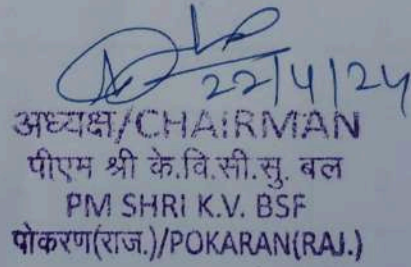 22/4/24
अध्यक्ष/CHAIRMAN
पीएम श्री के.वि.सी.सु. बल
PM SHRI K.V. BSF
पोकरण(राज.)/POKARAN(RAJ.)